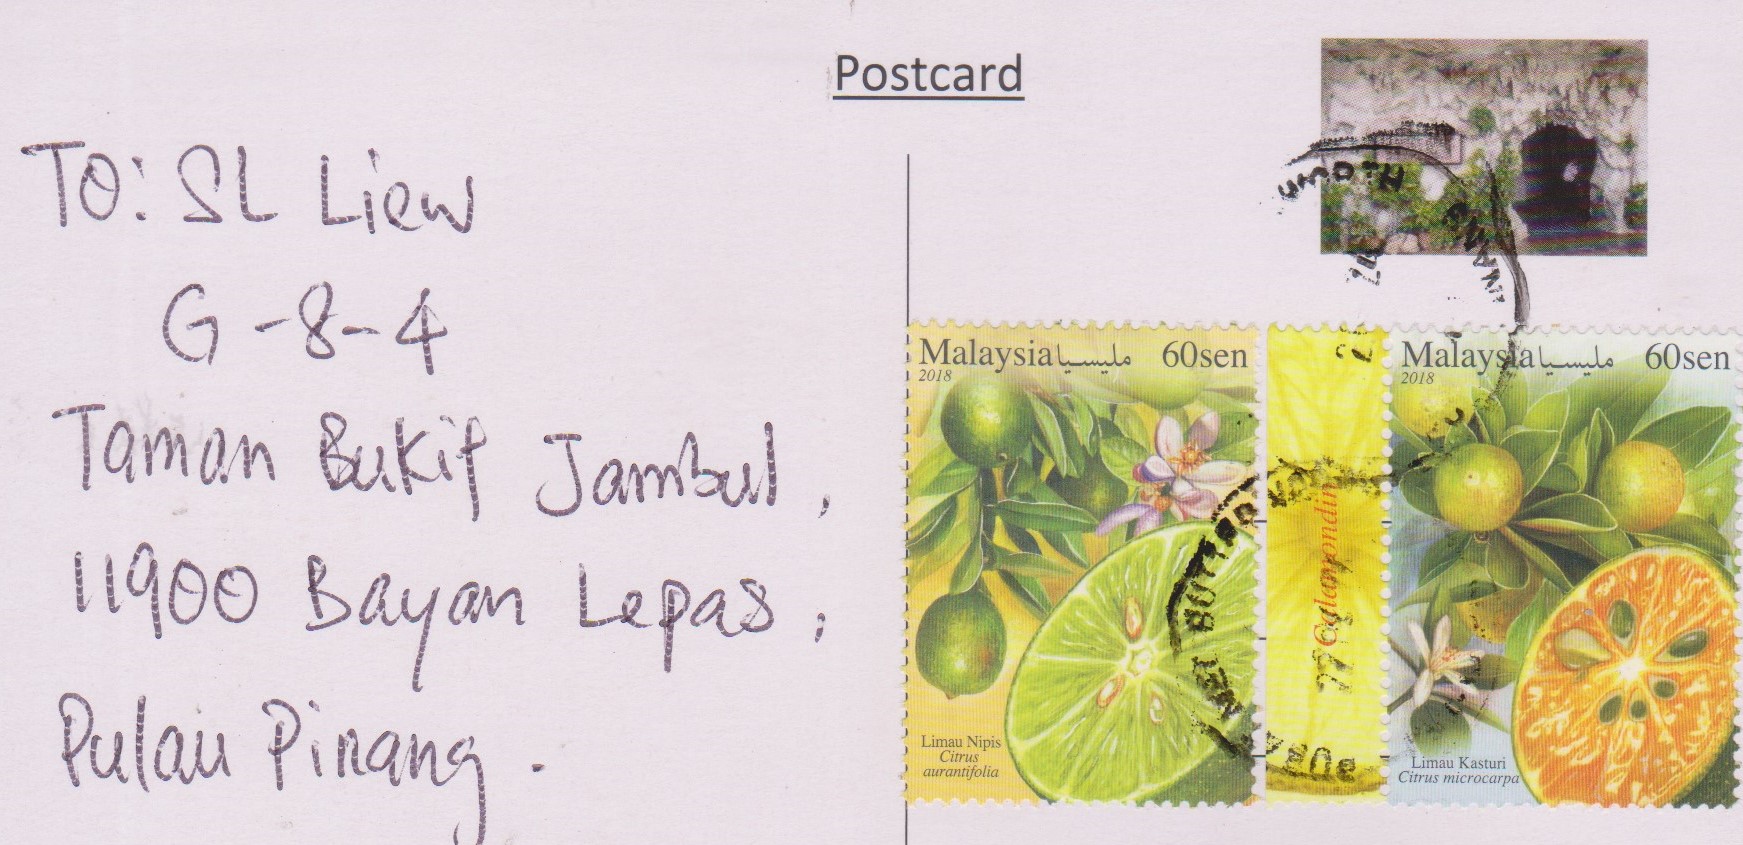 Postcard
TO: SL Liew
G-8-4
Taman Bukit Jambul,
11900 Bayan Lepas,
Pulau Pinang.
Malaysia مليسيا 60sen
2018
Limau Nipis
Citrus
aurantifolia
Malaysia مليسيا 60sen
2018
Limau Kasturi
Citrus microcarpa